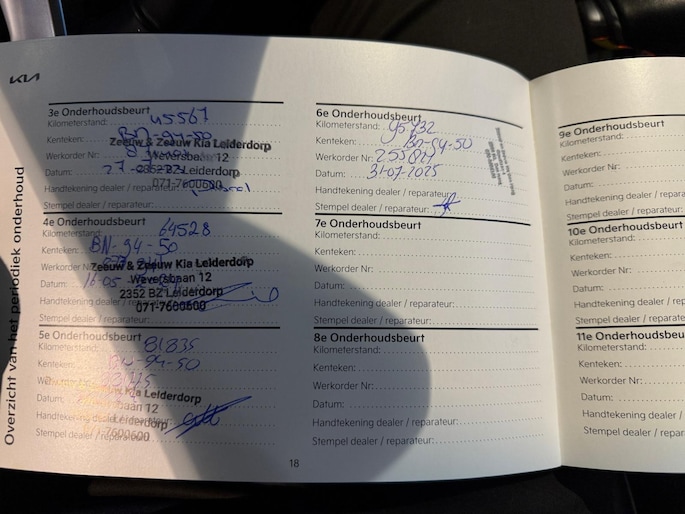 KIA
Overzicht van het periodiek onderhoud
3e Onderhoudsbeurt
Kilometerstand: 45567
Kenteken: BN-94-50
Zeeuw & Zeeuw Kia Leiderdorp
Werkorder Nr:
Weversbaan 12
Datum: 27-
2352 BZ Leiderdorp
Handtekening dealer / reparateur:
071-7600600
Stempel dealer / reparateur:
4e Onderhoudsbeurt
Kilometerstand: 64528
Kenteken: BN-94-50
Werkorder Nr:
Zeeuw & Zeeuw Kia Leiderdorp
Weversbaan 12
Datum: 16-05
2352 BZ Leiderdorp
Handtekening dealer / reparateur:
071-7600600
Stempel dealer / reparateur:
5e Onderhoudsbeurt
Kilometerstand: 81835
Kenteken: 94-50
Werkorder Nr:
Kia Leiderdorp
Datum:
baan 12
Handtekening dealer / reparateur:
Leiderdorp
Stempel dealer / reparateur:
7600600
18
6e Onderhoudsbeurt
Kilometerstand: 95732
Kenteken: BN-94-50
Werkorder Nr:
Datum: 31-07-2025
Handtekening dealer / reparateur:
Stempel dealer / reparateur:
7e Onderhoudsbeurt
Kilometerstand:
Kenteken:
Werkorder Nr:
Datum:
Handtekening dealer / reparateur:
Stempel dealer / reparateur:
8e Onderhoudsbeurt
Kilometerstand:
Kenteken:
Werkorder Nr:
Datum:
Handtekening dealer / reparateur:
Stempel dealer / reparateur:
9e Onderhoudsbeurt
Kilometerstand:
Kenteken:
Werkorder Nr:
Datum:
Handtekening dealer / repara
Stempel dealer / reparate
10e Onderhoudsbeurt
Kilometerstand:
Kenteken:
Werkorder Nr:
Datum:
Handtekening dealer / rep
Stempel dealer / reparate
11e Onderhoudsbeu
Kilometerstand:
Kenteken:
Werkorder Nr:
Datum:
Handtekening dealer /
Stempel dealer / repar